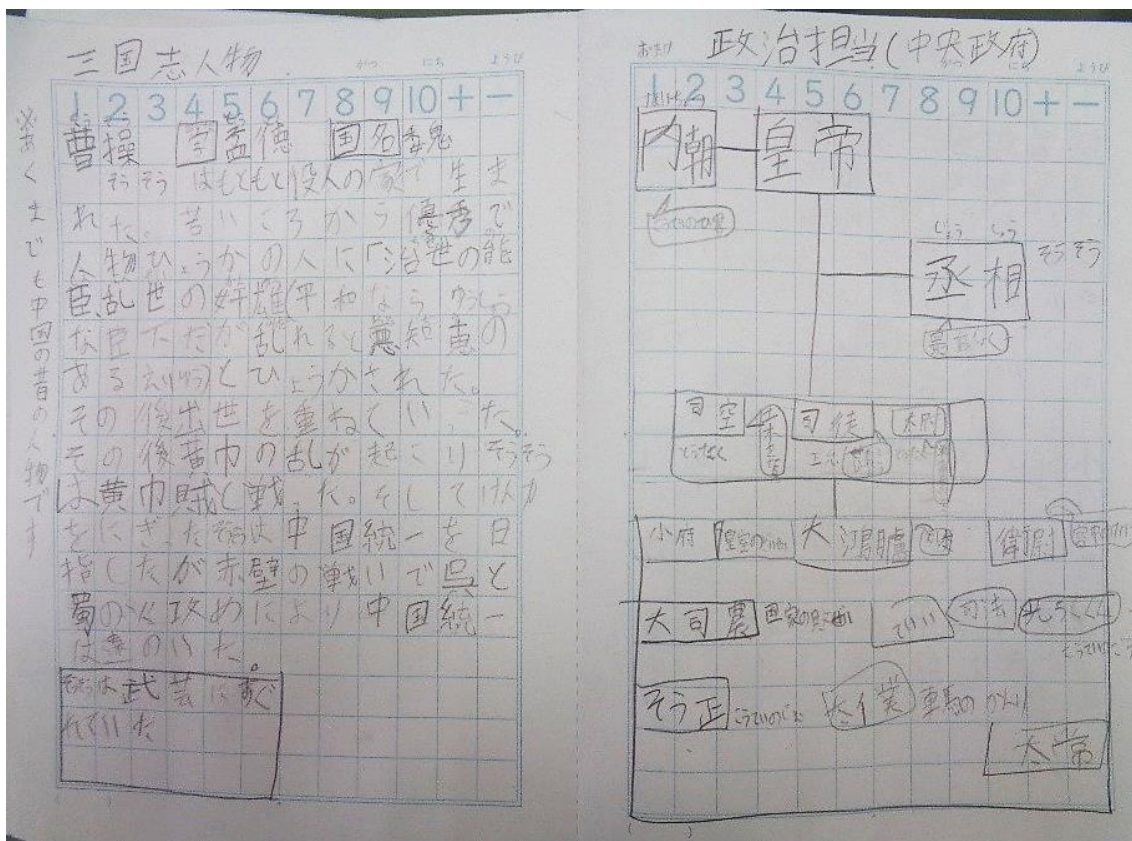 三国志人物
がつ にち ようび
1 2 3 4 5 6 7 8 9 10 + −
曹操 字 孟徳 国名 魏
そうそうはもともと役人の家で生ま
れた。若いころから優秀で
人物ひょうかの人に「治世の能
臣、乱世の奸雄(平和ならゆうしゅう
な臣下だが乱れると悪知恵の
ある)とひょうかされた。
その後出世を重ねていった。
その後黄巾の乱が起こりそうそう
は黄巾賊と戦った。そしてけんか
をにぎったそうそうは中国統一を目
指したが赤壁の戦いで呉と
蜀の火攻めにより中国統一
は遠のいた。
そうそうは武芸はすぐ
れていた
※あくまでも中国の昔の人物です
おまけ 政治担当(中央政府)
がつ にち ようび
1 2 3 4 5 6 7 8 9 10 + −
内朝 皇帝
じょう しょう
丞相 そうそう
司空 司徒 太尉
小府 大鴻臚 衛尉
大司農 てい 司法
そう正 こうていの 太僕 車馬のかんり
太常